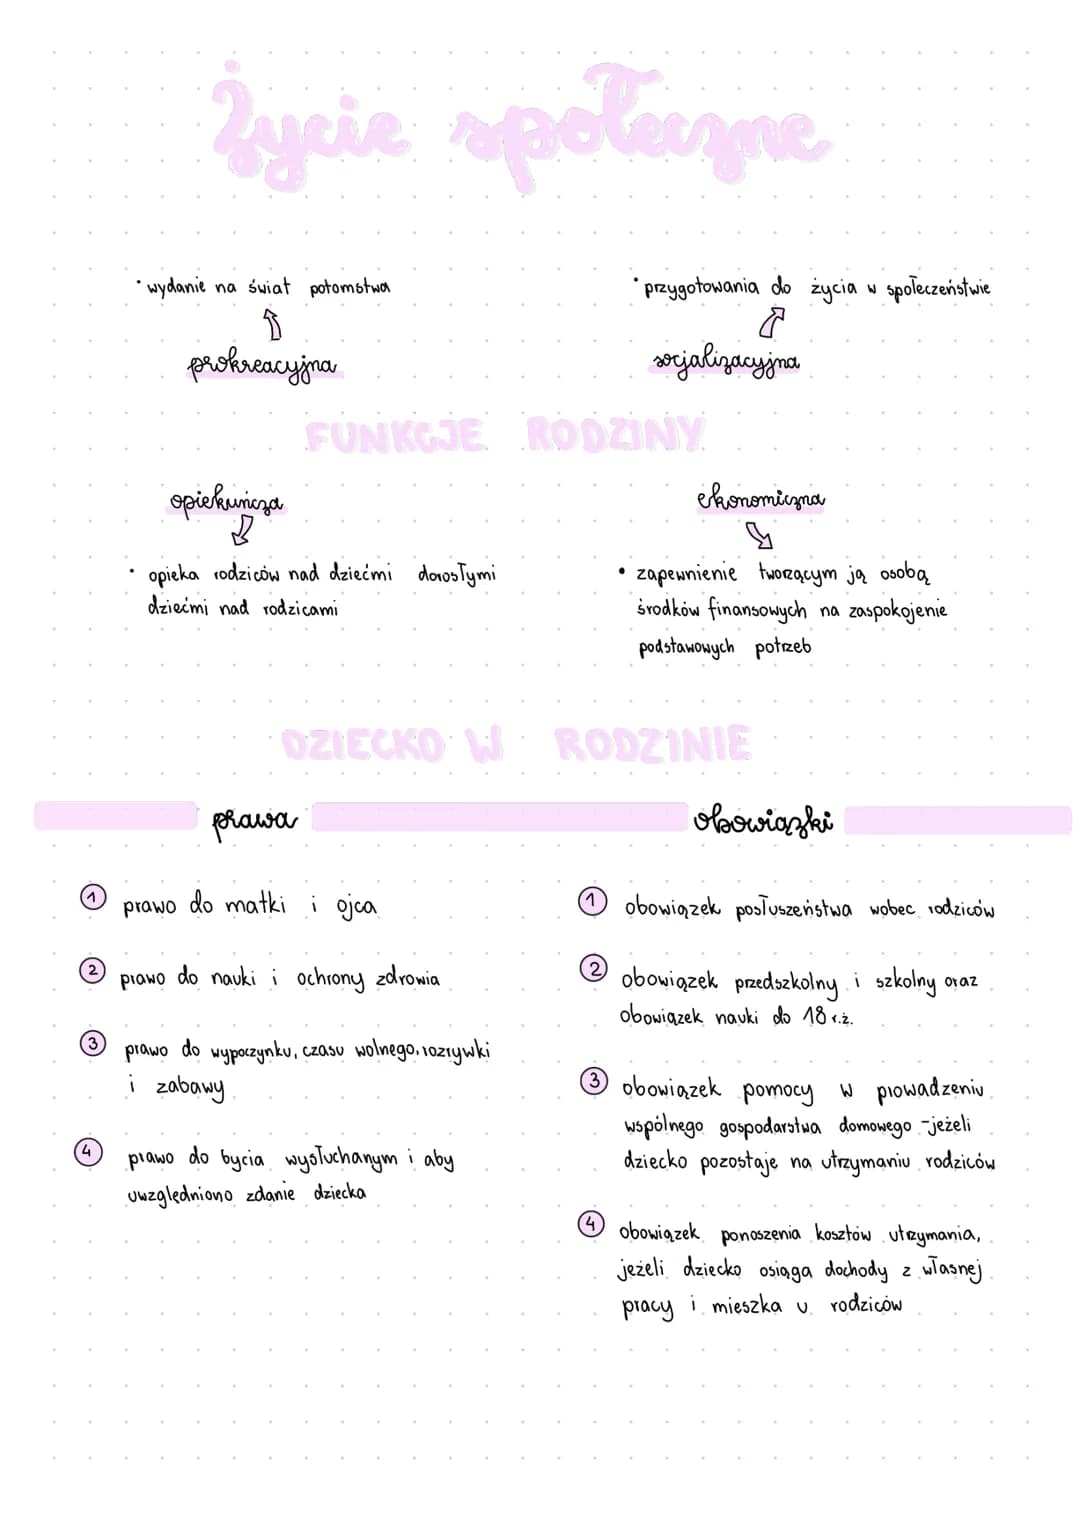 Życie społeczne
• wydanie na świat potomstwa
prokreacyjna
• przygotowania do życia w społeczeństwie
socjalizacyjna
FUNKCJE RODZINY
opiekuńcza
• opieka rodziców nad dziećmi dorosłymi
dziećmi nad rodzicami
ekonomiczna
• zapewnienie tworzącym ją osobą
środków finansowych na zaspokojenie
podstawowych potrzeb
DZIECKO W RODZINIE
prawa
1 prawo do matki i ojca
2 prawo do nauki i ochrony zdrowia
3 prawo do wypoczynku, czasu wolnego, rozrywki
i zabawy
4 prawo do bycia wysłuchanym i aby
uwzględniono zdanie dziecka
obowiązki
1 obowiązek posłuszeństwa wobec rodziców
2 obowiązek przedszkolny i szkolny oraz
obowiązek nauki do 18 r.ż.
3 obowiązek pomocy w prowadzeniu
wspólnego gospodarstwa domowego - jeżeli
dziecko pozostaje na utrzymaniu rodziców
4 obowiązek ponoszenia kosztów utrzymania,
jeżeli dziecko osiąga dochody z własnej
pracy i mieszka u rodziców